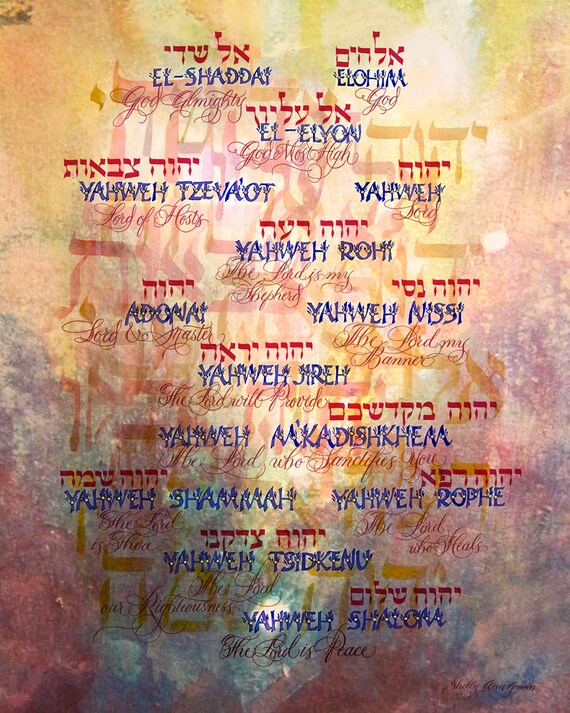 אל שדי
EL-SHADDAI
God Almighty
אלהים
ELOHIM
God
אל עליון
EL-ELYON
God Most High
יהוה צבאות
YAHWEH TZEVA'OT
Lord of Hosts
יהוה
YAHWEH
Lord
יהוה רעה
YAHWEH ROHI
The Lord is my
Shepherd
יהוה
ADONAI
Lord & Master
יהוה נסי
YAHWEH NISSI
The Lord my
Banner
יהוה יראה
YAHWEH JIREH
The Lord will Provide
יהוה מקדשכם
YAHWEH M'KADISHKHEM
The Lord who Sanctifies You
יהוה שמה
YAHWEH SHAMMAH
The Lord
is There
יהוה רפא
YAHWEH ROPHE
The Lord
who Heals
יהוה צדקנו
YAHWEH TSIDKENU
The Lord
our Righteousness
יהוה שלום
YAHWEH SHALOM
The Lord is Peace
Shelly Ann